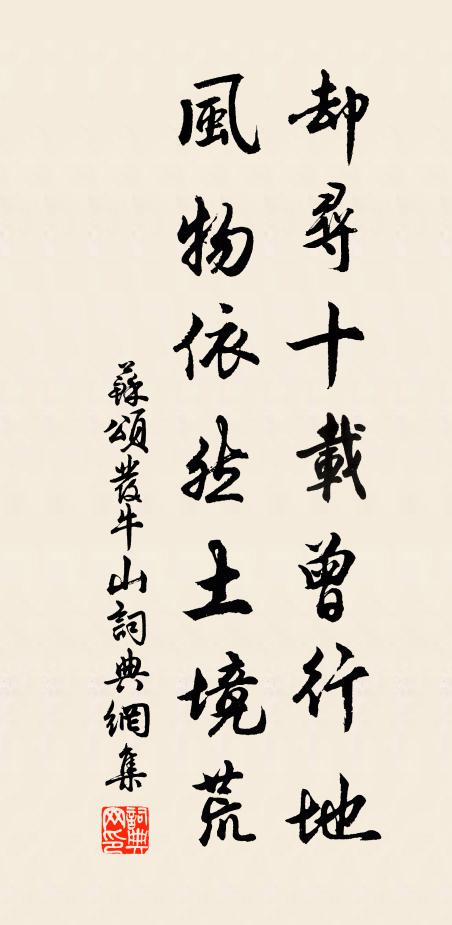 却尋十載曾行地
風物依然土境荒
蘇頌發牛山詞典網集
詞典網印